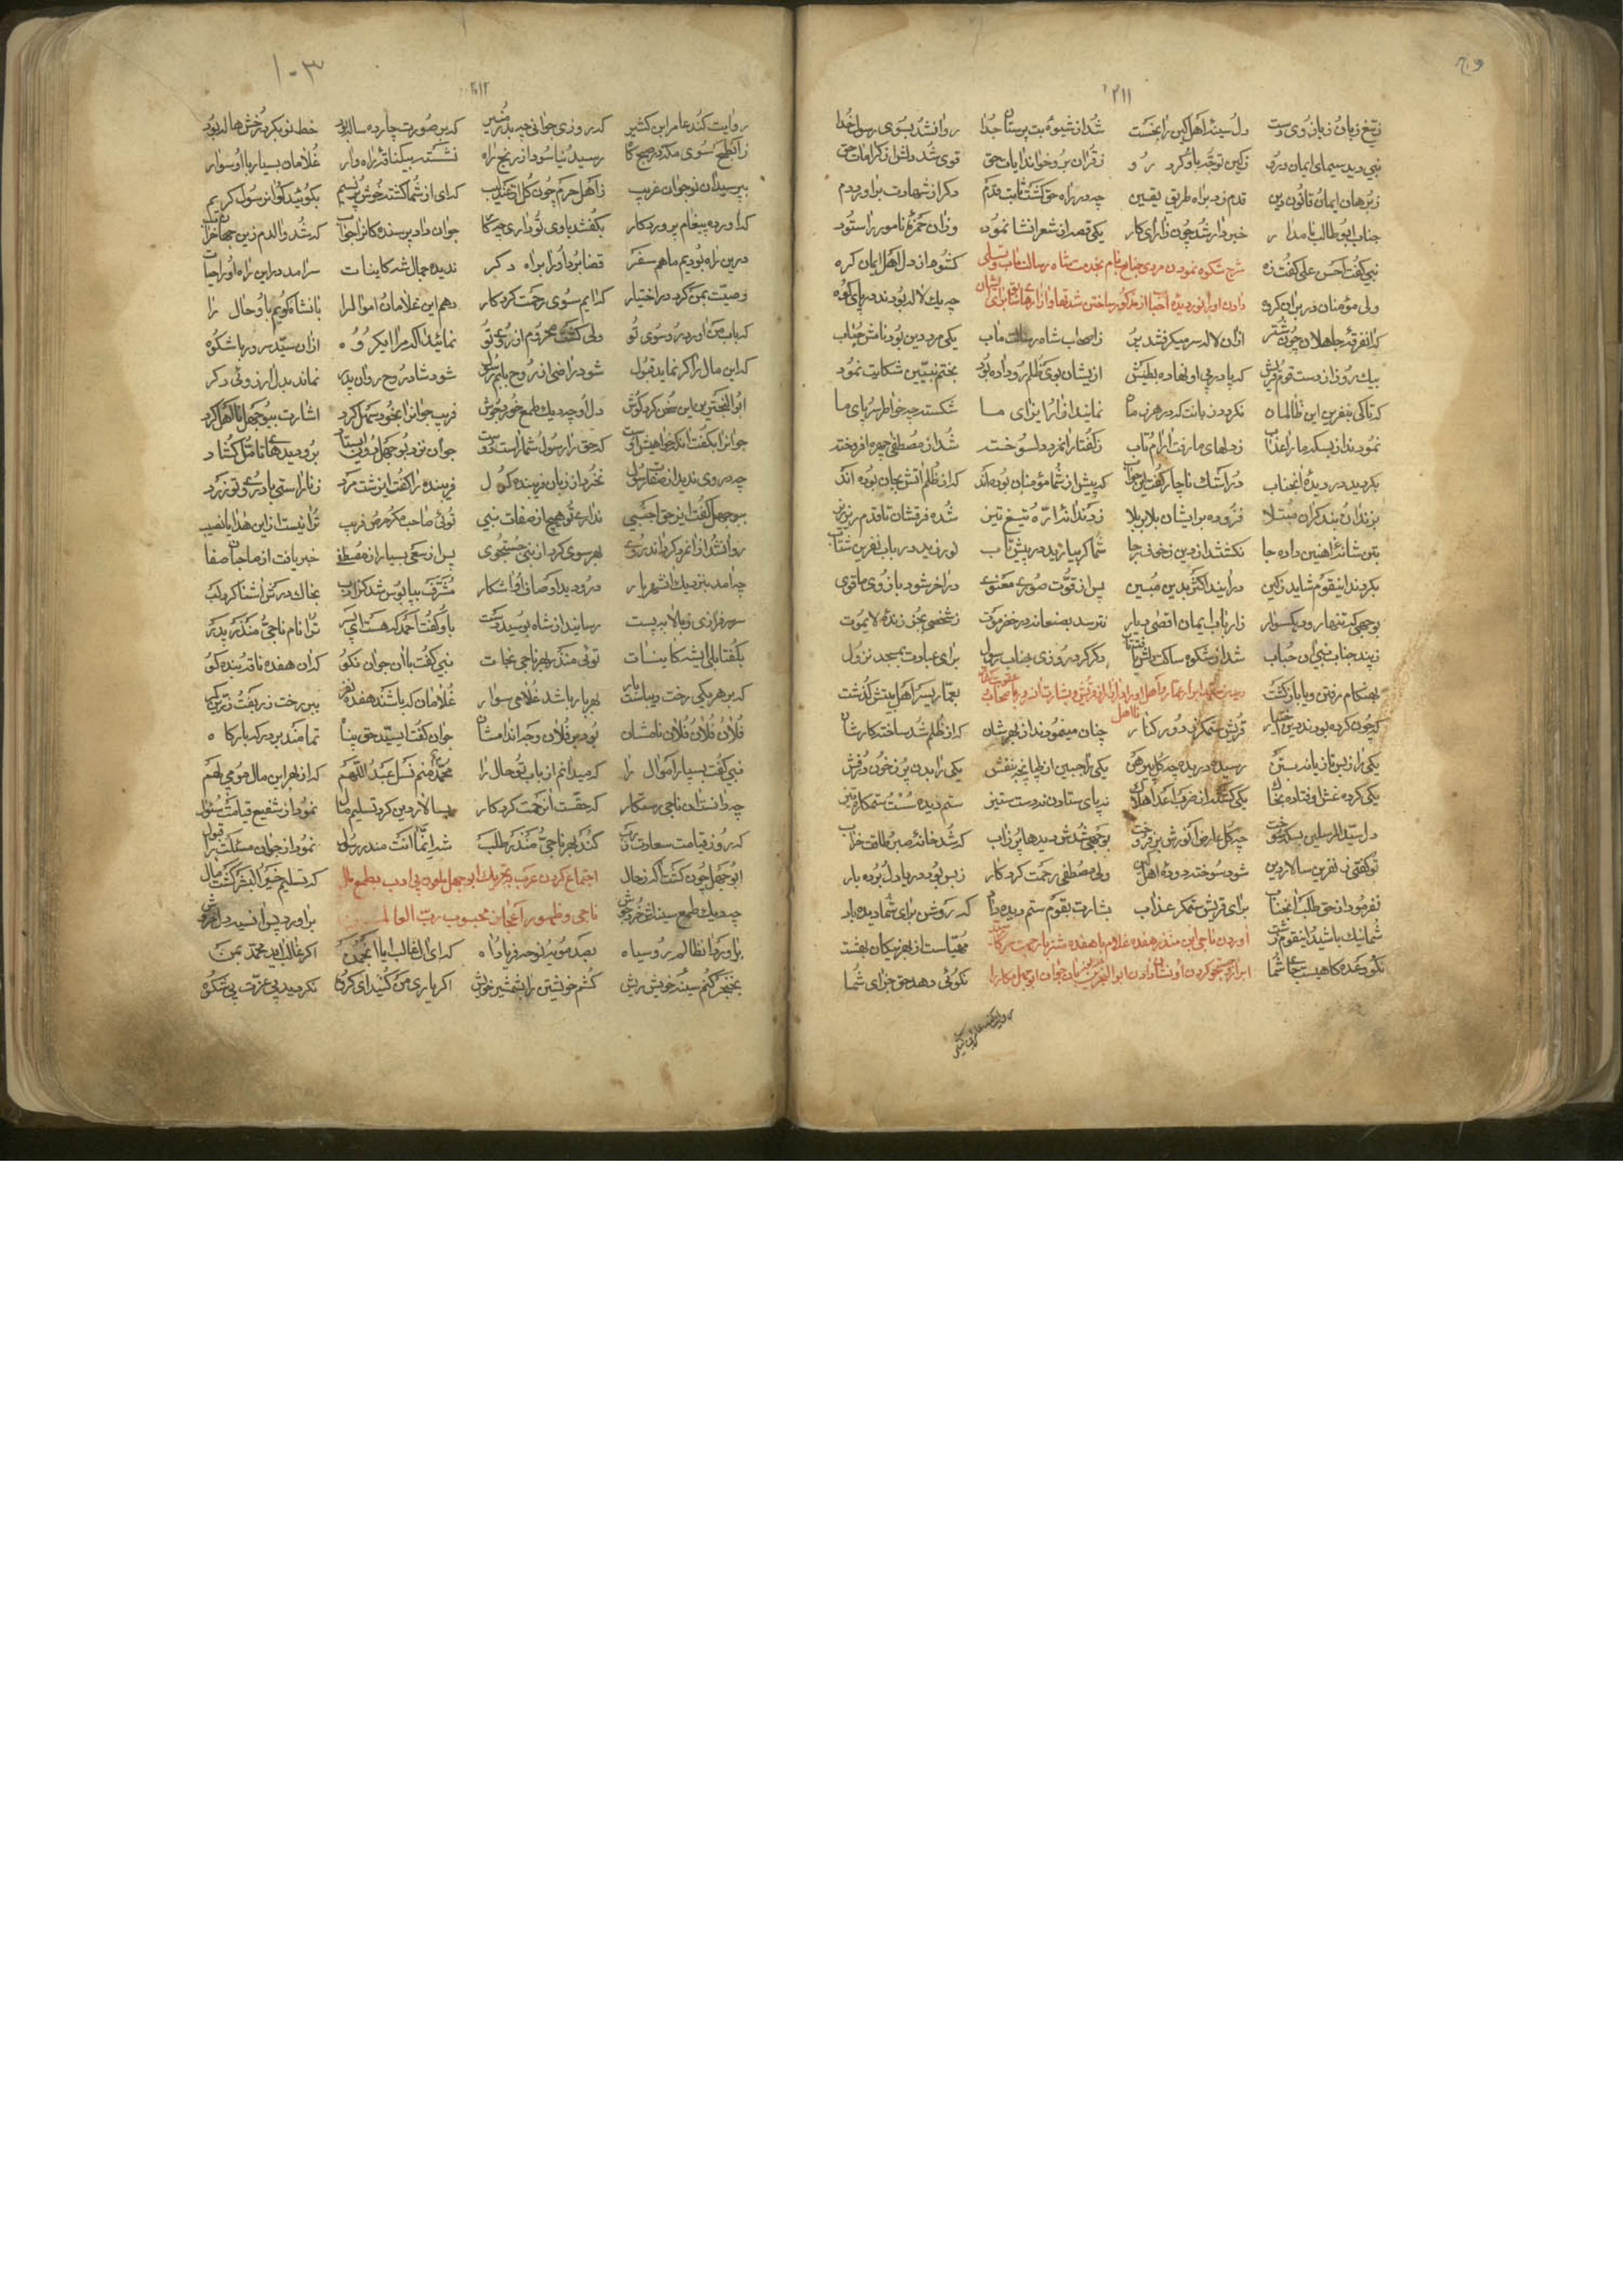 ۲۱۱
ز تیغ زبان و زبان زوی دست دل سینهٔ اهل کین را بخست شد از شیوهٔ بت پرستان جدا روانشد بسوی رسول خدا
نبی دید سیمای ایمان درو ز کین توجه باو کرد رو ز قران برو خواند ایات حق قوی شد دلش از کرامات حق
ز برهان ایمان قانون دین قدم زد براه طریق یقین چه در راه حق کشت ثابت قدم دکر از شهادت براورد دم
جناب ابو طالب نامدار خبردار شد چون ز ارای کار یکی قصه از شعر انشا نمود وزان حمزهٔ نامور را ستود
نبی کفت احسن علی کفت زه شرح شکوه نمودن مردی جناب نام بخدمت شاه رسالت ماب و تسلی کشوها ز دل اهل ایمان کره
ولی مؤمنان در بران کروه دادن او را چه یک لاله بودند در پای کوه
که انفرقهٔ جاهلان چون شتر ازان لاله سر میکرفتند پر ز اصحاب شاه رسالت ماب یکی مرد دین بود نامش جناب
بیک روز از دست قوم قریش که پا در پی او نهاده بطیش از یشان بوی ظلم رو داده بود بختم نبیین شکایت نمود
که تا کی بنفرین این ظالمان نکردد زبانت که در هر زمان نمایند ازار و ایذای ما شکستند چه خواطر سراپای ما
نمودند از بسکه ما را عذاب ز دلهای ما رفت ارام و تاب ز کفتار انمرد دلسوخته شد از مصطفی چهره افروخته
بکردید در دیدهٔ انجناب در اشک ناچار کفت این جواب که پیش از شما مؤمنان بوده اند که از ظلم اتش بجان بوده اند
بزندان و بند کران مبتلا فزوده بر ایشان بلا بر بلا زدند اندارّه و تیغ تیز شده فرقشان تا قدم ریز ریز
بتن شانهٔ اهنین داده جا نکشتند از دین ز خوبی بر جا شما کر بیازید در پیش تاب نورزید در باب نفرین شتاب
بکردند اینقوم شاید ز کین درایند اکثر بدین مبین پس از قوت صوری و معنوی در اخر شود بازوی ما قوی
بوجهی که تنها رود یکسوار ز ارباب ایمان اقصی دیار نترسد بصنعا ز در حضرموت ز شخصی بجز زندهٔ لایموت
ز پند جناب نبی ان جناب شد از شکوه ساکت دکر کرد روزی جناب رسول برای عبادت بمسجد نزول
بهنکام رفتن و یا باز کشت بعمار یسر اهل بیتش کذشت
که چون کرده بودند دین اختیار قریش ستمکر بی دور کنار چنان مینمودند از بهر شان که از ظلم شد ساخته کار شان
یکی را ز بس تازیانه بتن رسیده دریده چه کل پیرهن یکی را جبین از طپانچه بنفش یکی را بدن پر ز خون درفش
یکی کرده غش اوفتاده بخاک یکی کشته از ضرب اعدا هلاک نه پای ستادن نه دست ستیز ستم دیده دست ستمکاره تیز
دل سید المرسلین بسکه سوخت چه کل عارض انورش برفروخت بوجهی شدش دیدها پر ز اب که شد خانهٔ صبر و طاقت خراب
تو کفتی ز نفرین سالار دین شود سوخته دودهٔ اهل کین ولی مصطفی رحمت کردکار ز بس بود دریا دل و بردبار
نفرمود از حق طلب انجناب برای قریش ستمکر عذاب بشارت بقوم ستم دیده داد که روشن برای شما دیده باد
شما نیک باشید اینقوم زشت اوردن ناجی ابن منذر هفده غلام با هفده شتر با رحمت مهیاست از بهر نیکان بهشت
نکو وعده کاهیست جای شما نکوئی دهد حق جزای شما
روایت کند عامر ابن کثیر
۲۱۲
۱۰۳
روایت کند عامر ابن کثیر که روزی جوانی چه بدر منیر که بر صورت چارده ساله بود خط نو بکرد رخش هاله بود
ز ابطح سوی مکه در صبح کاه رسید و نیاسود از رنج راه نشسته بر یک ناقهٔ راهوار غلامان بسیار با او سوار
بپرسید ان نوجوان غریب ز اهل حرم چون کل از عندلیب که ای از شما کشته خوش پر نسیم بکوئید کو ان رسول کریم
که اورده پیغام پروردکار بکفتند با وی تو داری چه کار جوان داد پرسنده کانرا جواب که شد والدم زین جهان خراب
درین راه بودیم ما هم سفر قضا برد او را براه دکر ندیده جمال شه کاینات سرامد در این راه او را حیات
وصیت بمن کرد در اختیار که ایم سوی رحمت کردکار دهم این غلامان و اموال را بانشاه کویم باو حال را
که باب من اورد رو سوی تو ولی کشت محروم از روی تو نمائید اکه مرا ایکروه ازان سید سرور با شکوه
که این مال را کر نماید قبول شود راضی از روح بابم رسول شود شاد روح روان پدر نماند بدل ارزوئی دکر
ابو البختری این سخن کرد کوش دل او چه دیک طمع خورد جوش فریب جوانرا بخود سهل کرد اشارت ببوجهل نا اهل کرد
جوانرا بکفت انکه خواهیش اوست که حق را رسول شما راست دوست جوان نزد بوجهل دون ایستاد برو دیدهای تامل کشاد
چه در روی ندید از صفا رسول نخورد از زبان فریبنده کول فریبنده را کفت این زشت مرد ز نا راستی یاد وی تو زرد
ببوجهل کفت این حق اجنبی نداری تو هیچ از صفات نبی توئی صاحب مکر و مر فریب ترا نیست از این هدایا نصیب
روانشد از انمرد کردانده روی بهر سوی کرد از نبی جستجوی پس از سعی بسیار از مصطفی خبر یافت از صاحبان صفا
چه امد بنزدیک ان شهریار درو دید اوصاف او اشکار مشرف بپابوس شد کز ادب بخاک درکش اشنا کرد لب
سر سرفرازی ز بالا بپست رسانید از شاه بوسید دست باو کفت احمد که هست ای پسر ترا نام ناجی و منذر پدر
بکفتا بلی ایشه کاینات توئی منذر بهر ناجی نجات نبی کفت با ان جوان نکو که ان هفده ناقه بنده کو
که بر هر یکی رخت دیباست بار بهر بار باشد غلامی سوار غلامان که باشند هفده نفر ببر رخت زربفت و زرین کمر
فلان و فلان و فلان نامشان بود در فلان وجه اندامشان جوان کفتا بسید حق پناه تمامند بر درکه بارکاه
نبی کفت بسیار اموال را که میدانم از باب تو حال را محمد منم نسل عبد اللهم که از بهر این مال مومی بهم
چه دانست ان ناجی رستکار که حقست ان رحمت کردکار بسالار دین کرد تسلیم مال نمود از شفیع قیامت سئوال
که روز قیامت سعادت ز رب کند بهر ناجی و منذر طلب شد انما انت منذر رسول نمود از جوان مسئلت را قبول
ابو جهل چون کشت اکه ز حال اجتماع کردن عرب بتحریک ابو جهل ملعون بی ادب بطمع مال که تسلیم خیر البشر کشت مال
چه دیک طمع سینه اش خورد جوش ناجی و ظهور اعجاز محبوب رب العالمین براورد پس از سیه دل خروش
براورد ان ظالم رو سیاه بصد مویه و نوحه فریاد و اه که ای ال غالب ایا انجمن اکر غالب اید محمد بمن
بخنجر کنم سینهٔ خویش ریش کشم خویشتن را بشمشیر خویش اکر یاری من کنید ای کروه نکردید بی عزت بی شکوه